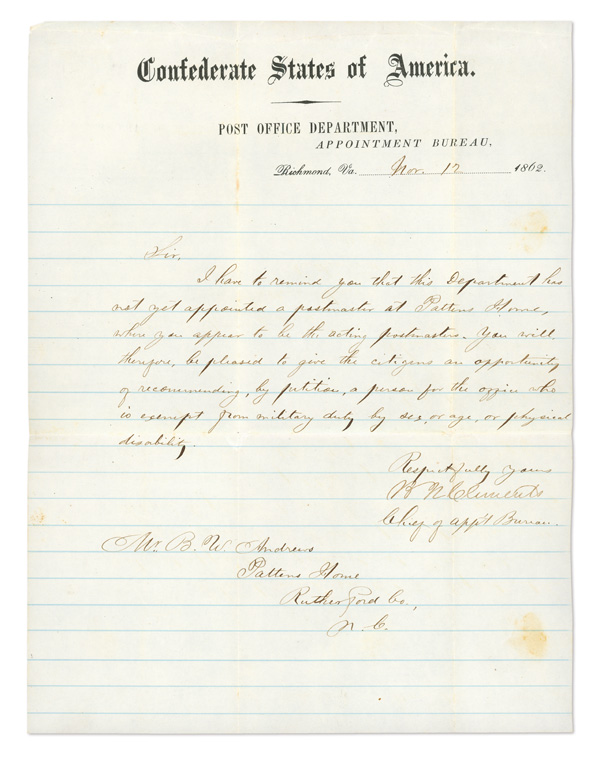 Confederate States of America.
POST OFFICE DEPARTMENT,
APPOINTMENT BUREAU,
Richmond, Va. Nov. 12 1862.
Sir,
I have to remind you that this Department has
not yet appointed a postmaster at Pattens Home,
where you appear to be the acting postmaster. You will
therefore, be pleased to give the citizens an opportunity
of recommending, by petition, a person for the office who
is exempt from military duty by sex, or age, or physical
disability
Respectfully yours
B N Clements
Chief of app't Bureau.
Mr. B. W. Andrews
Pattens Home
Rutherford Co.,
N. C.